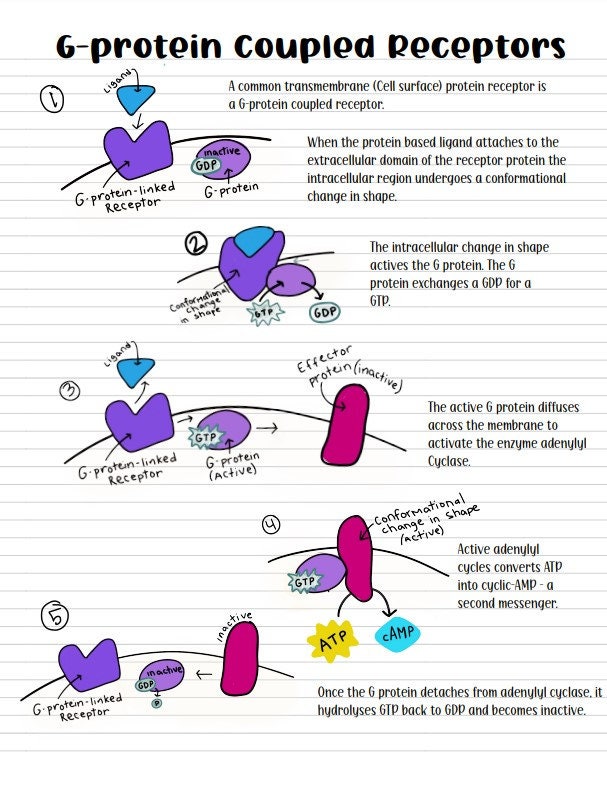 G-protein Coupled Receptors
1
Ligand
A common transmembrane (Cell surface) protein receptor is
a G-protein coupled receptor.
inactive
GDP
G-protein
G-protein-linked
Receptor
When the protein based ligand attaches to the
extracellular domain of the receptor protein the
intracellular region undergoes a conformational
change in shape.
2
Conformational
change
in shape
GTP
GDP
The intracellular change in shape
actives the G protein. The G
protein exchanges a GDP for a
GTP.
3
Ligand
GTP
G-protein-linked
Receptor
G-protein
(Active)
Effector
protein (inactive)
The active G protein diffuses
across the membrane to
activate the enzyme adenylyl
Cyclase.
4
Conformational
change in shape
(active)
GTP
ATP
cAMP
Active adenylyl
cycles converts ATP
into cyclic-AMP - a
second messenger.
5
inactive
inactive
GDP
P
G-protein-linked
Receptor
Once the G protein detaches from adenylyl cyclase, it
hydrolyses GTP back to GDP and becomes inactive.